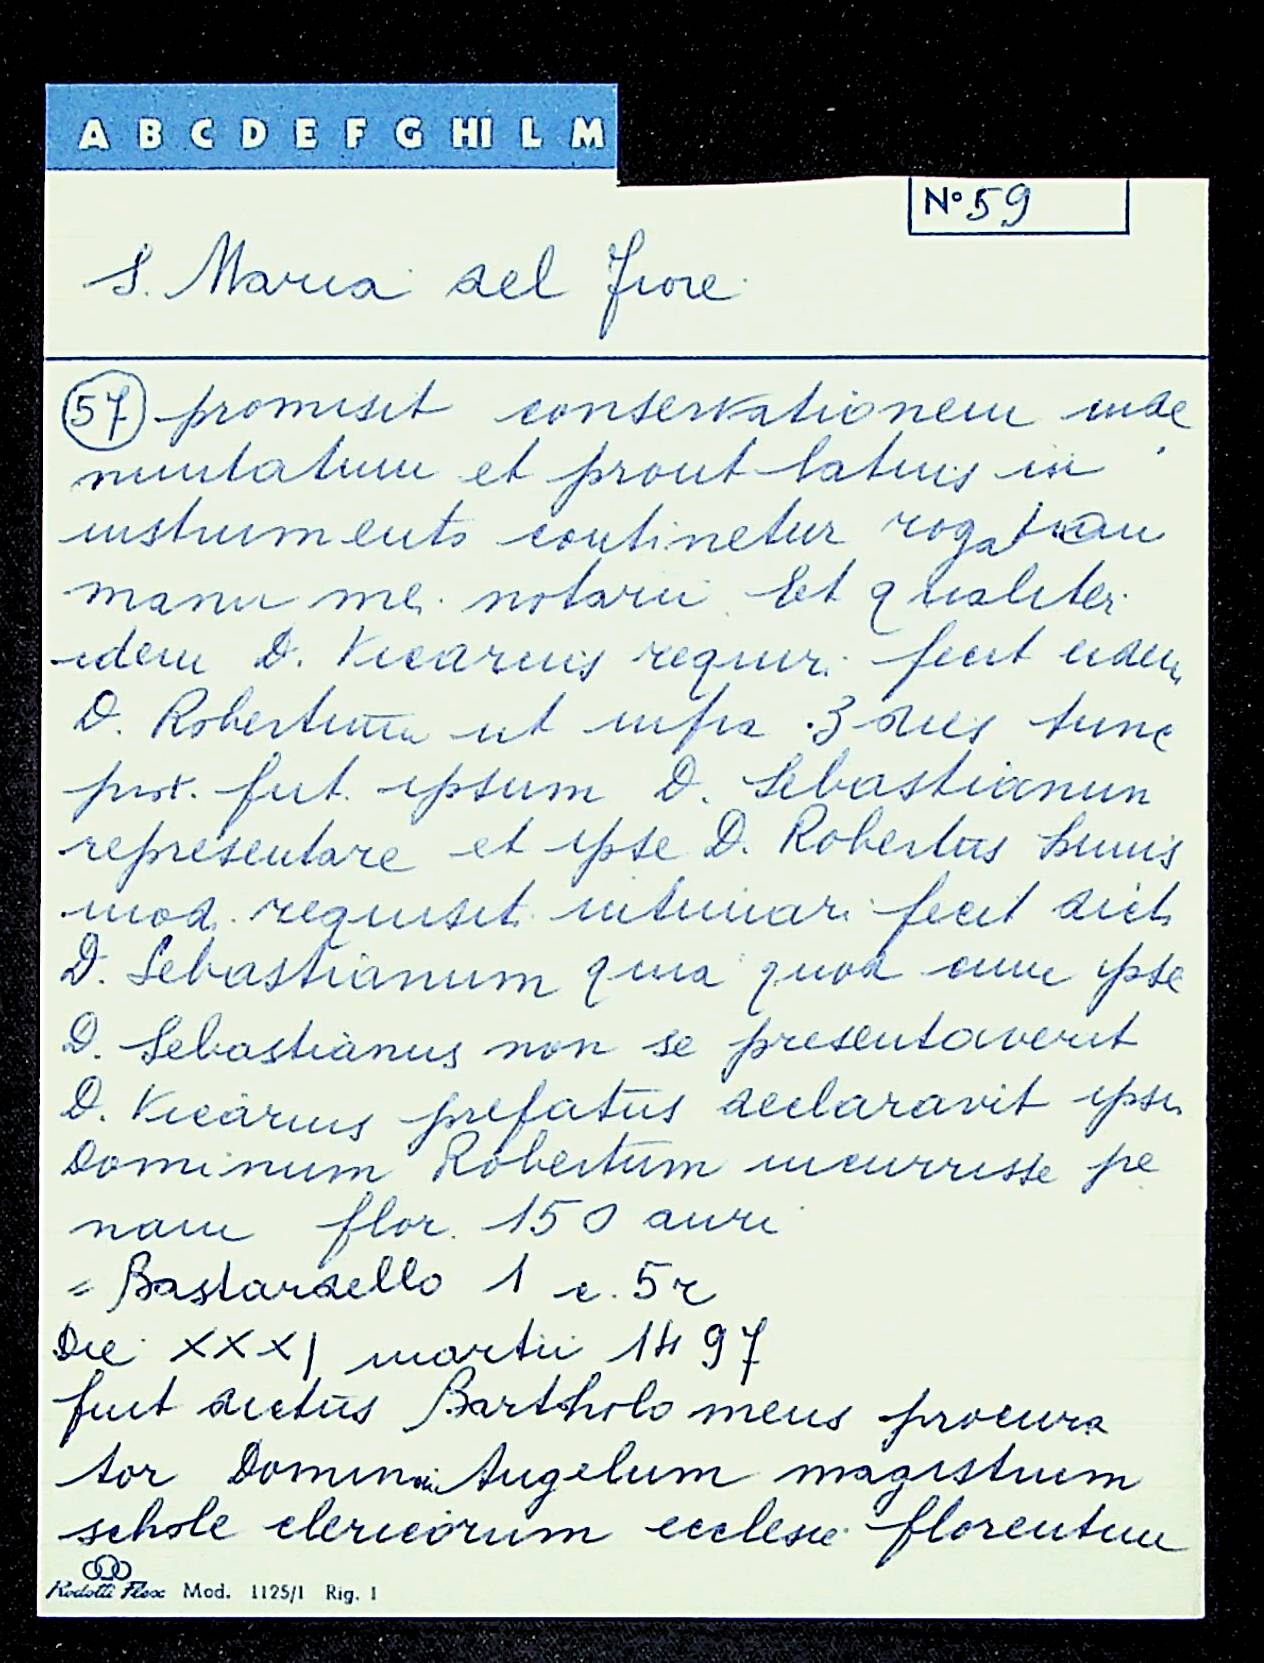 A B C D E F G HI L M
N° 59
S. Maria del Fiore
57 promisit conservationem inde
mnitatum et prout latius in
instrumento continetur rogat
manu mei notarii Et qualiter
idem D. Vicarius requiri fecit eidem
D. Robertum ut infra 3 dies tunc
prox. fut. ipsum D. Sebastianum
representare et ipse D. Robertus
mod. requisit. intimari fecit dict.
D. Sebastianum quia quod cum ipse
D. Sebastianus non se presentaverit
D. Vicarius prefatus declaravit ipsu
Dominum Robertum incurrisse pe
nam flor. 150 auri
= Bastardello 1 c. 5r
Die XXXI martii 1497
fuit dictus Bartholomeus procura
tor Domin Angelum magistrum
schole clericorum ecclesie florentine
Rodotti Flex Mod. 1125/1 Rig. 1